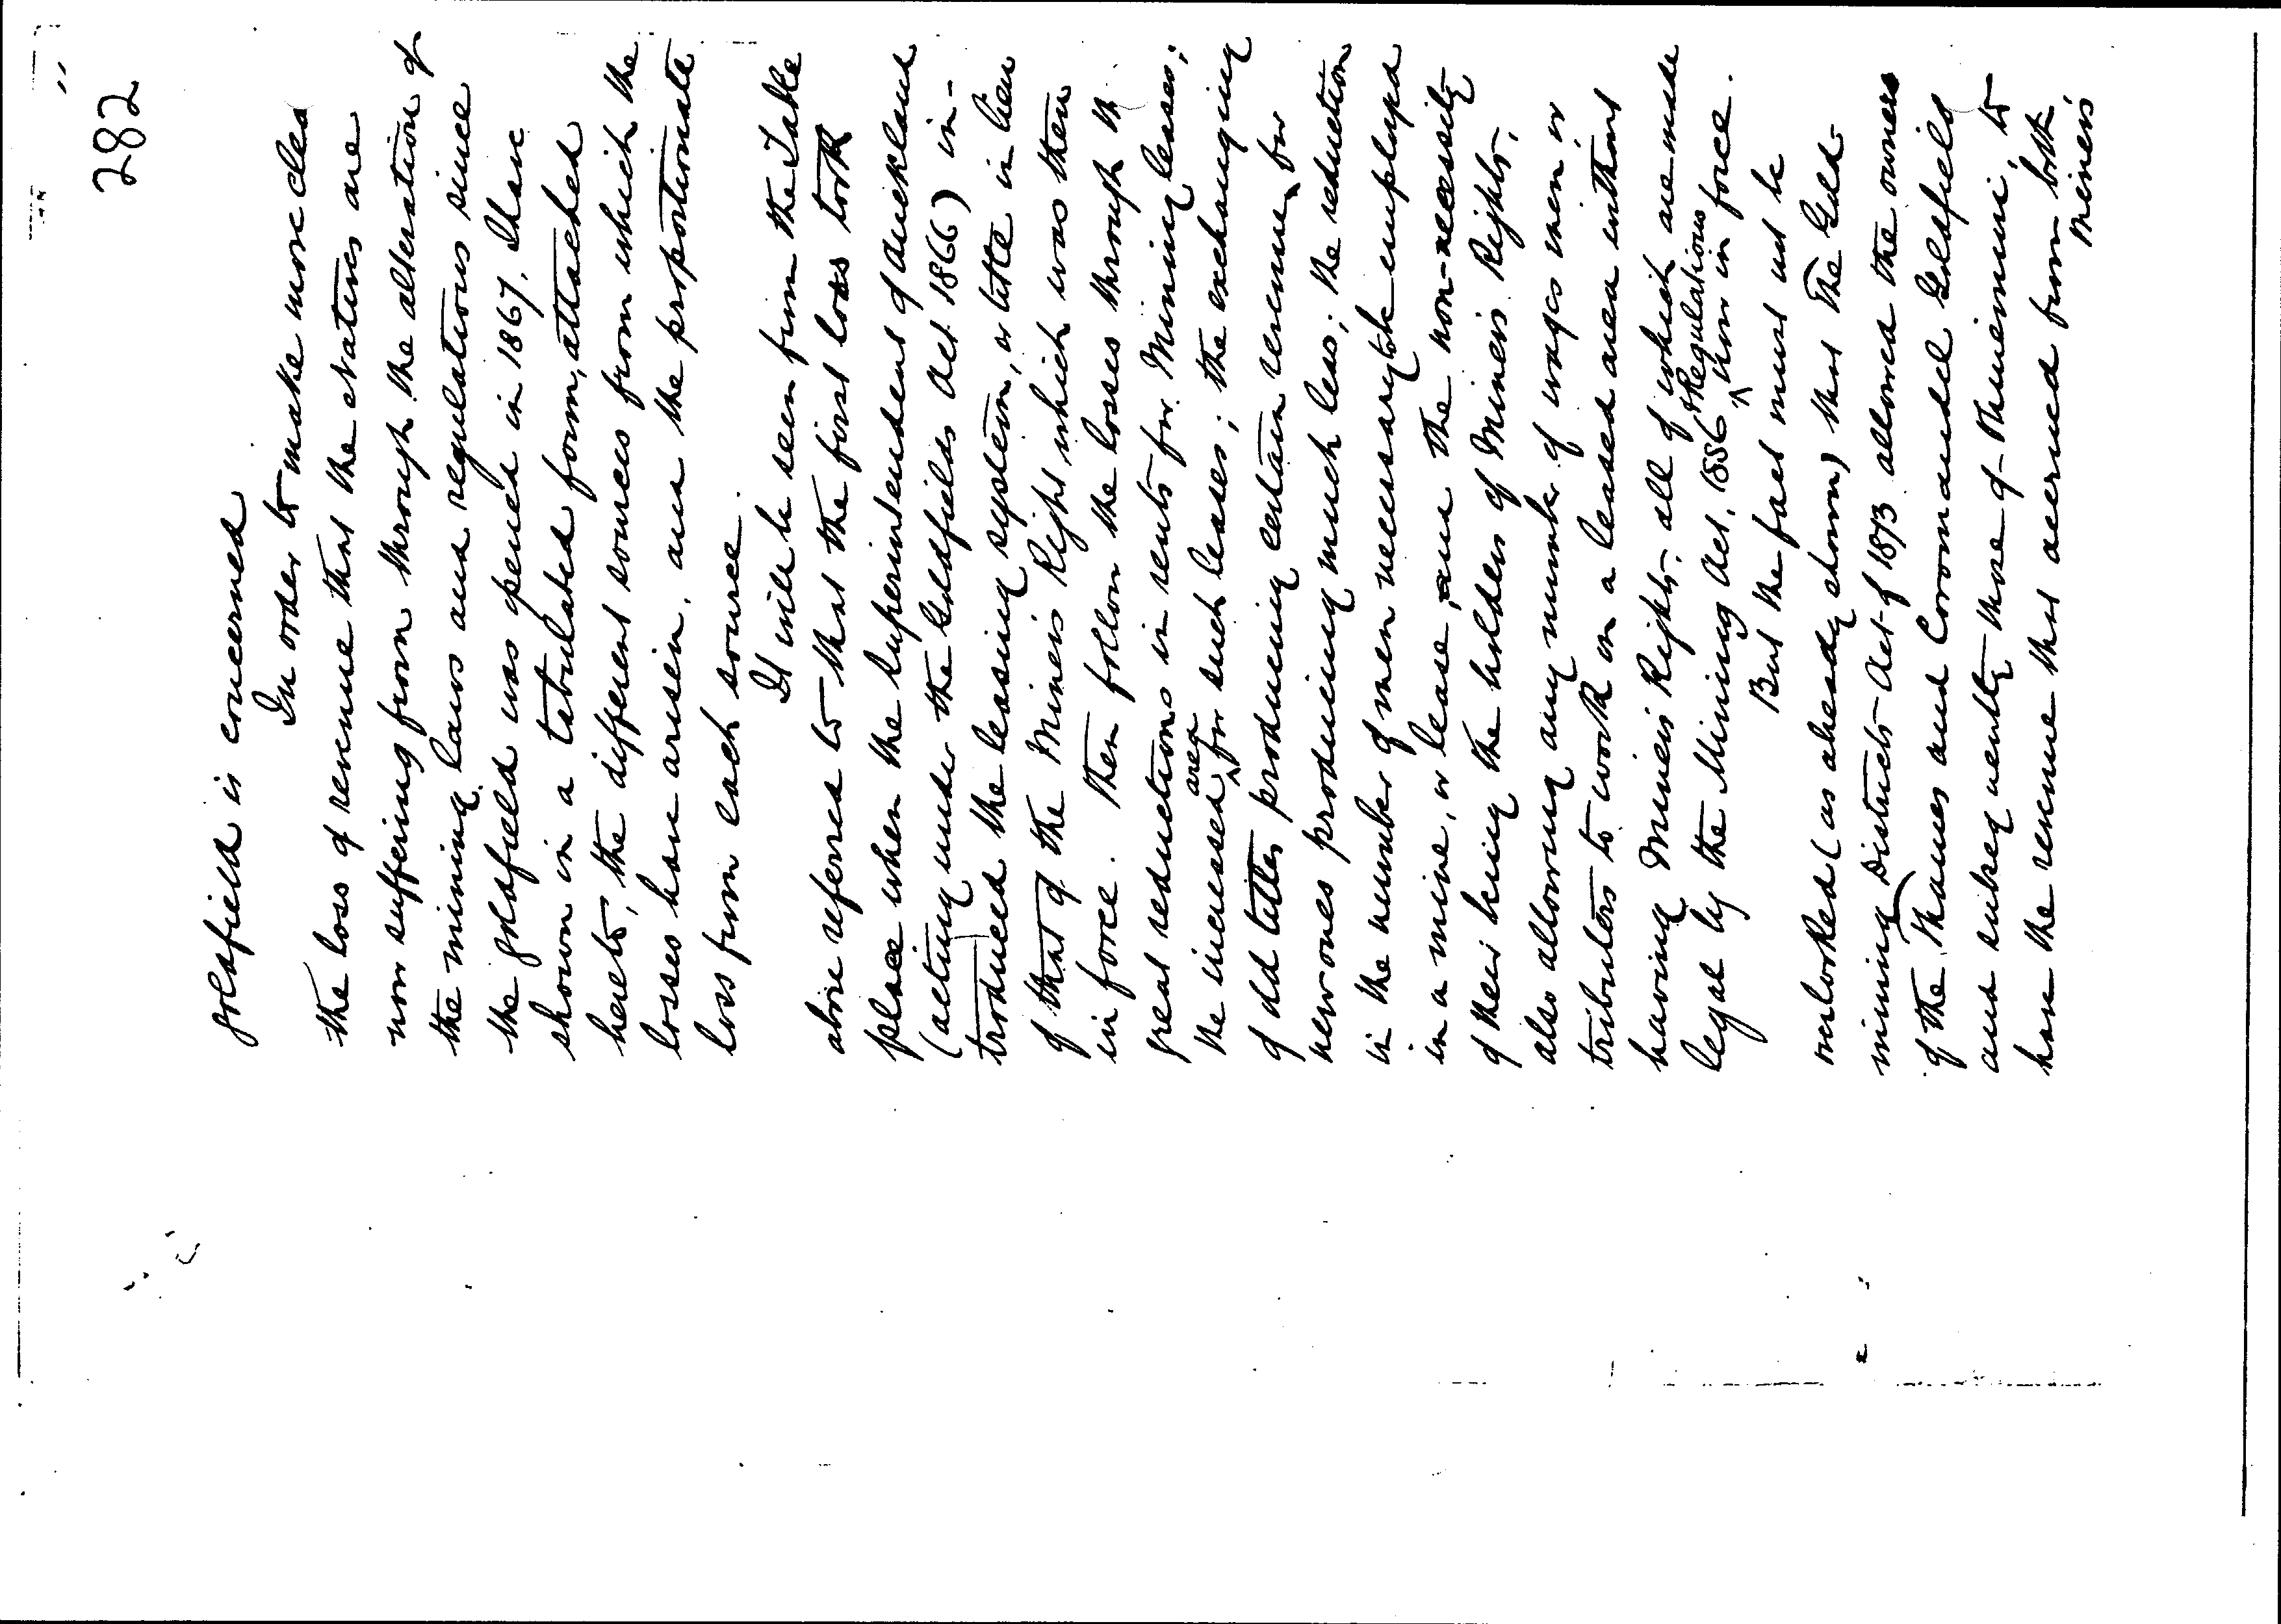 282
goldfield is concerned
In order to make more clea
the loss of revenue that the Natives are
now suffering from through the alteration of
the mining laws and regulations since
the goldfield was opened in 1867, I have
shown in a tabulated form, attached
hereto, the different sources from which the
losses have arisen, and the proportionate
loss from each source.
It will be seen from the Table
above referred to that the first loss took
place when the Superintendent of Auckland
(acting under the Goldfields Act 1866) in-
troduced the leasing system, or title in lieu
of that of the Miner's Right which was then
in force. Then follow the losses through th
great reductions in rents for Mining leases;
the increased area for such leases; the exchanging
of old titles producing certain revenue, for
new ones producing much less; the reduction
in the number of men necessary to be employed
in a mine, or lease, and the non-necessity
of their being the holders of Miner's Rights,
also allowing any number of wages men or
tributers to work on a leased area without
having Miner's Rights, all of which are made
legal by the Mining Act, 1886 & Regulations now in force.
But the fact must not be
overlooked (as already shown) that The Gold-
mining Districts Act of 1873 allowed the owners
of the Thames and Coromandel Goldfield
and subsequently those of Ohinemuri, to
have the revenue that accrued from both
Miner's